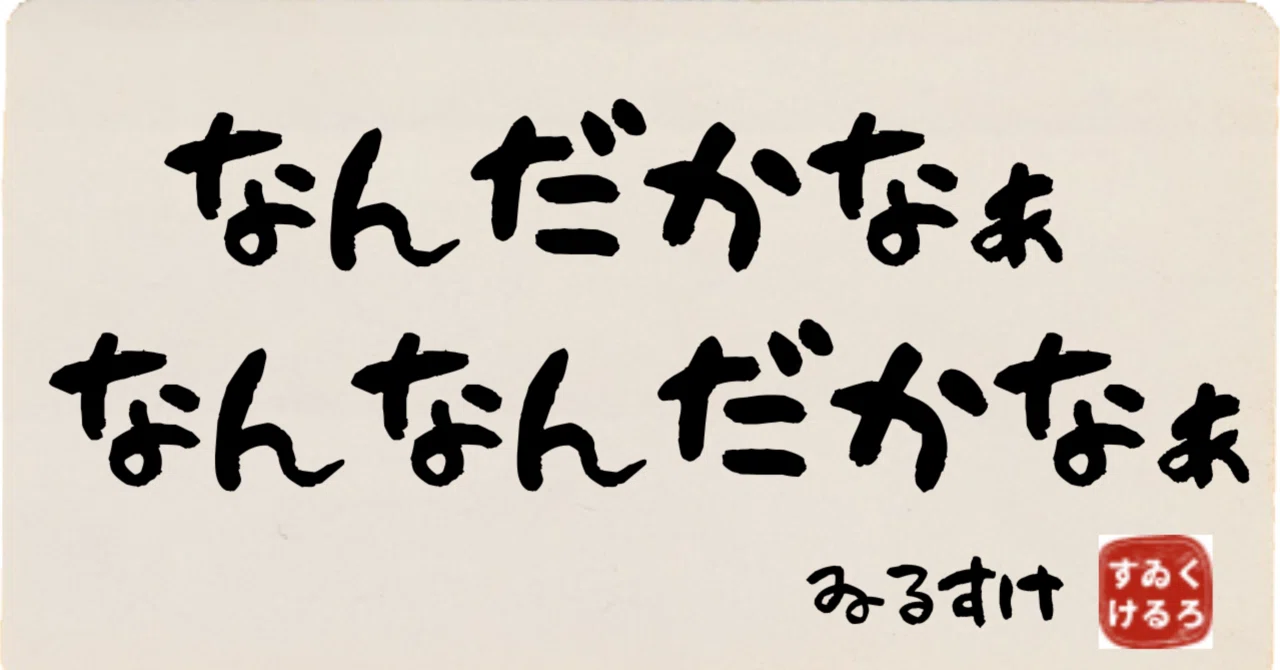 なんだかなぁ
なんなんだかなぁ
ゐるすけ
くろ
ゐる
すけ